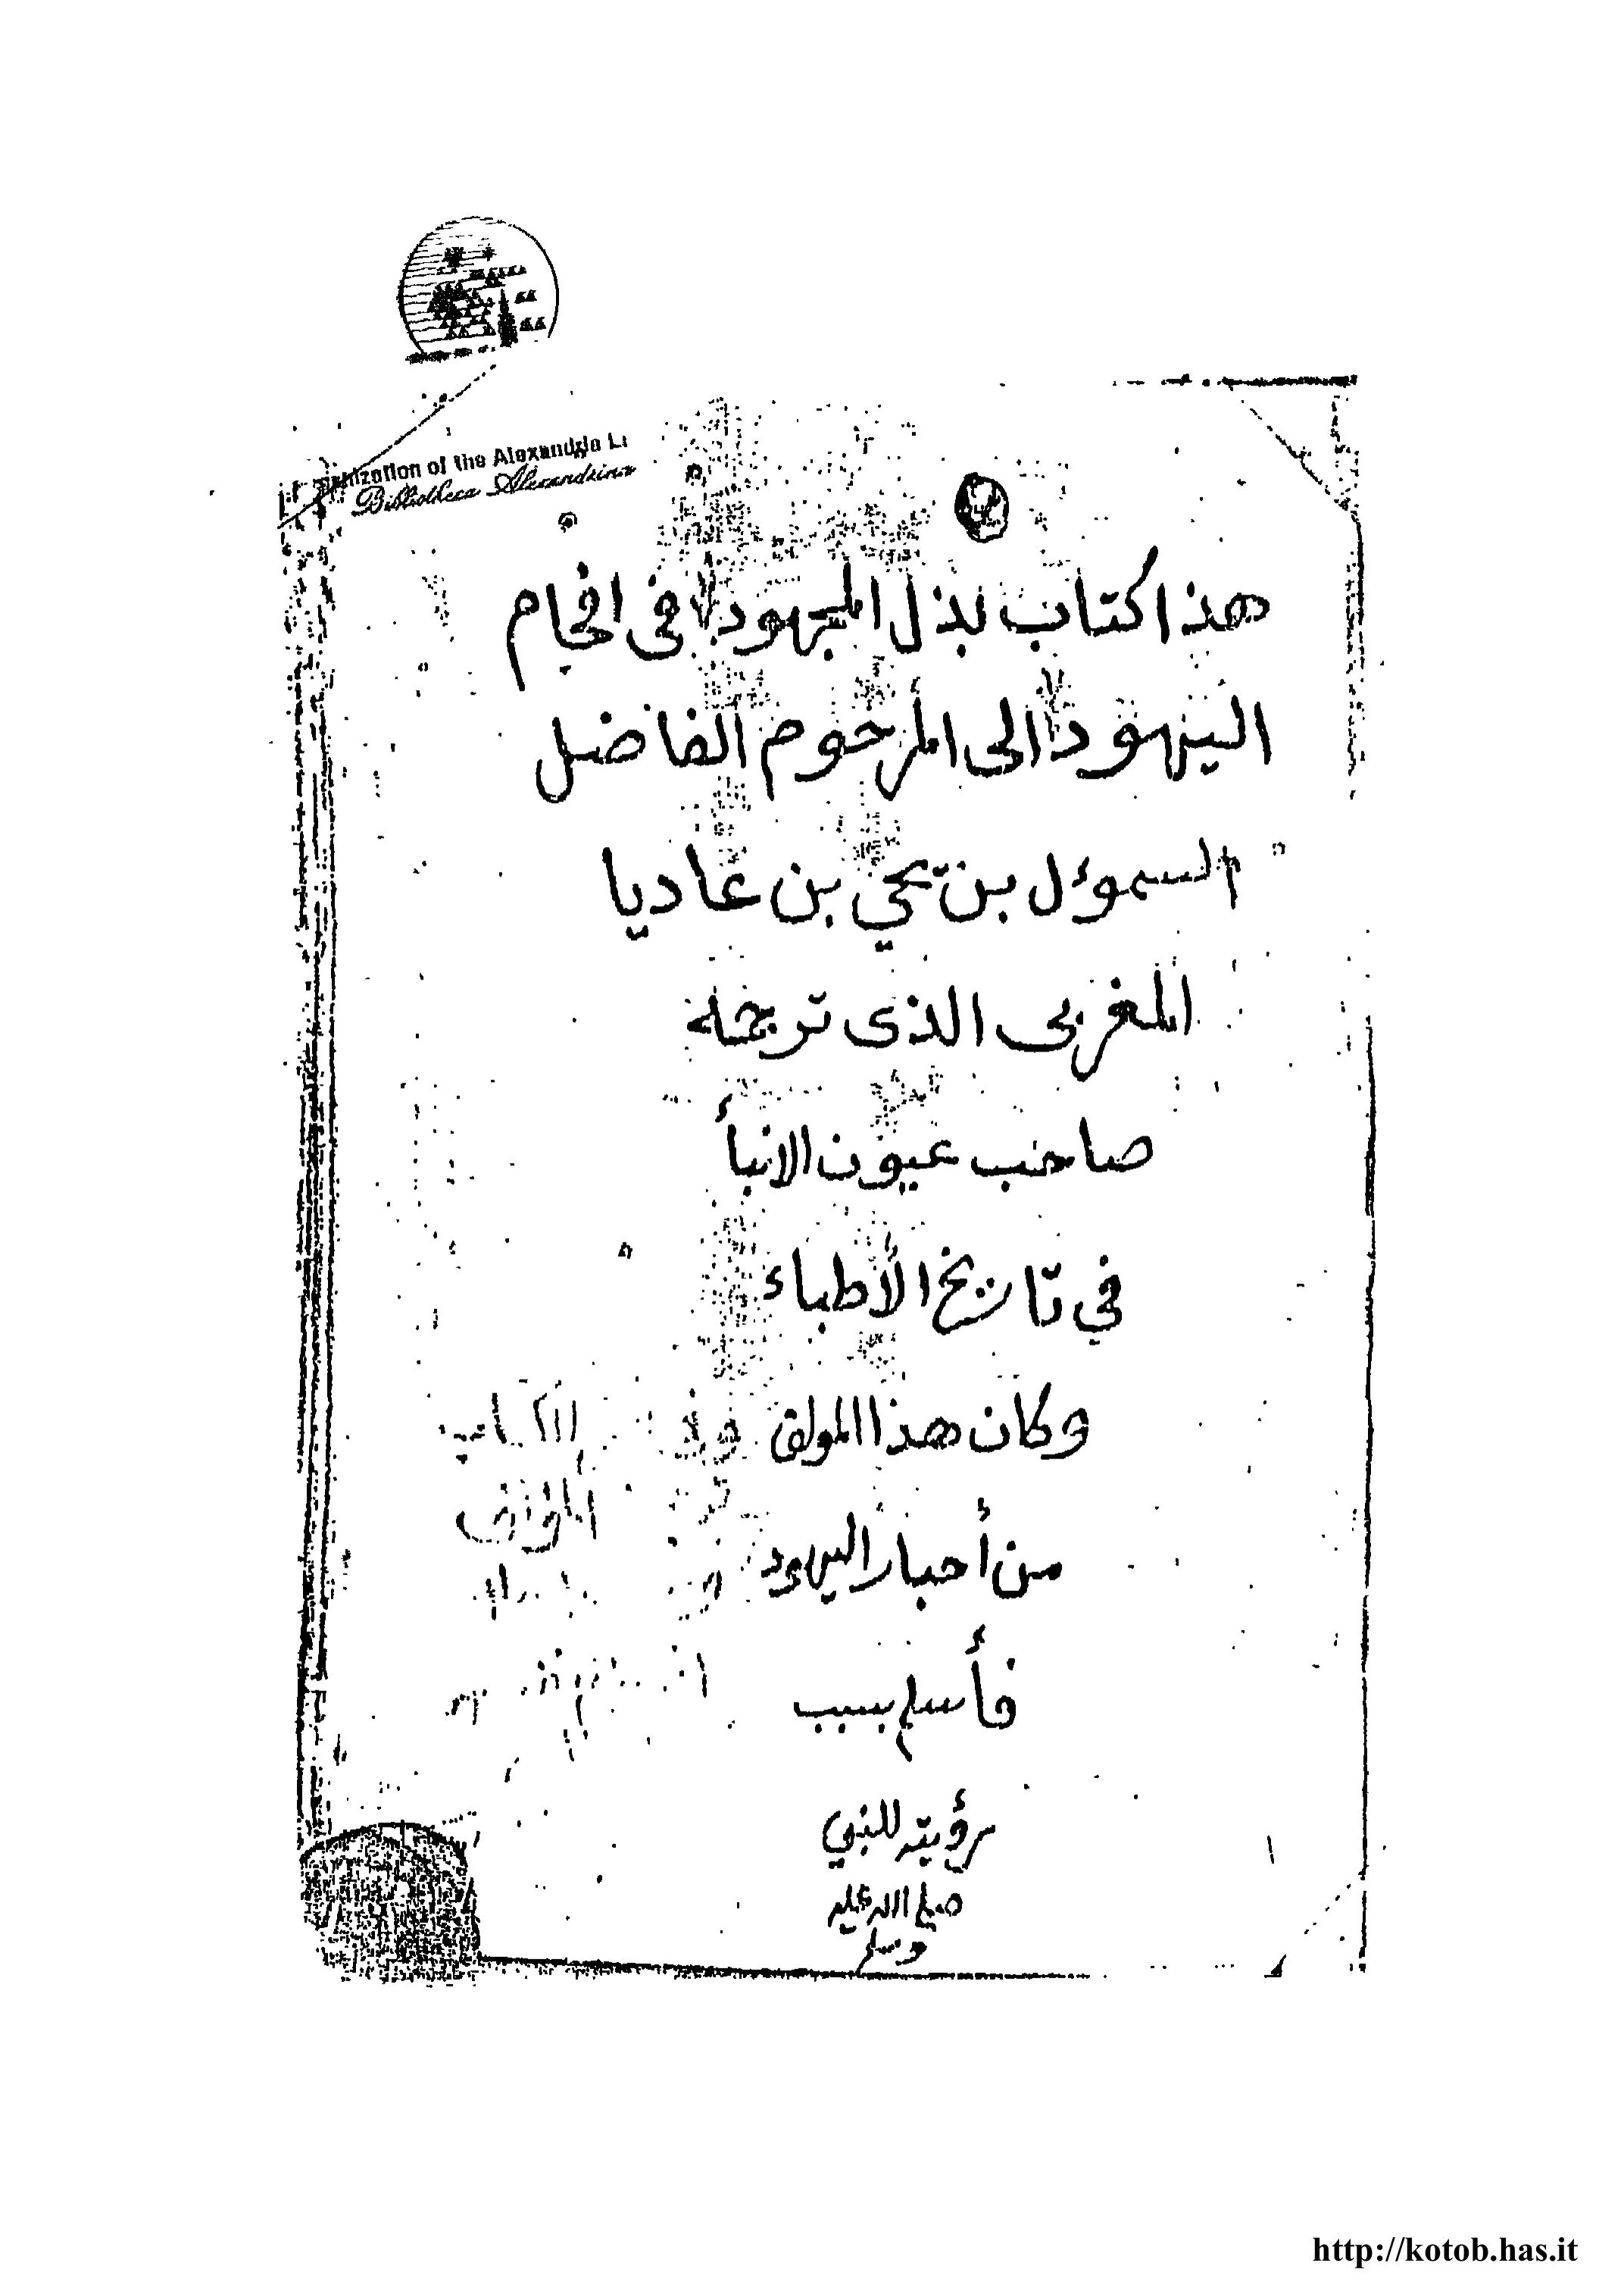 nization of the Alexandria Li
Bibliotheca Alexandrina
هذا كتاب بذل المجهود في افحام
اليهود الى المرحوم الفاضل
السموءل بن يحي بن عاديا
المغربى الذى ترجمه
صاحب عيون الانبأ
في تاريخ الأطباء
وكان هذا المولف
من أحبار اليهود
فأسلم بسبب
رؤيته للنبي
صلى الله عليه
وسلم
http://kotob.has.it